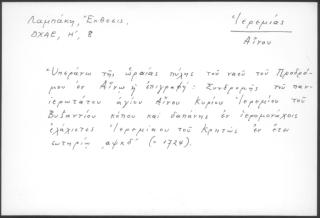 Λαμπάκη, Ἔκθεσις,
ΔΧΑΕ, Η', 8
Ἱερεμίας
Αἴνου
Ὑπεράνω τῆς ὡραίας πύλης τοῦ ναοῦ τοῦ Προδρό-
μου ἐν Αἴνῳ ἡ ἐπιγραφή: Συνδρομῆς τοῦ παν-
ιερωτάτου ἁγίου Αἴνου Κυρίου Ἱερεμίου τοῦ
Βυζαντίου κόπου καὶ δαπάνης ἐν ἱερομονάχοις
ἐλάχιστος Ἱερεμίαου τοῦ Κρητὸς ἐν ἔτει
σωτηρίῳ αψκδ' (=1724).